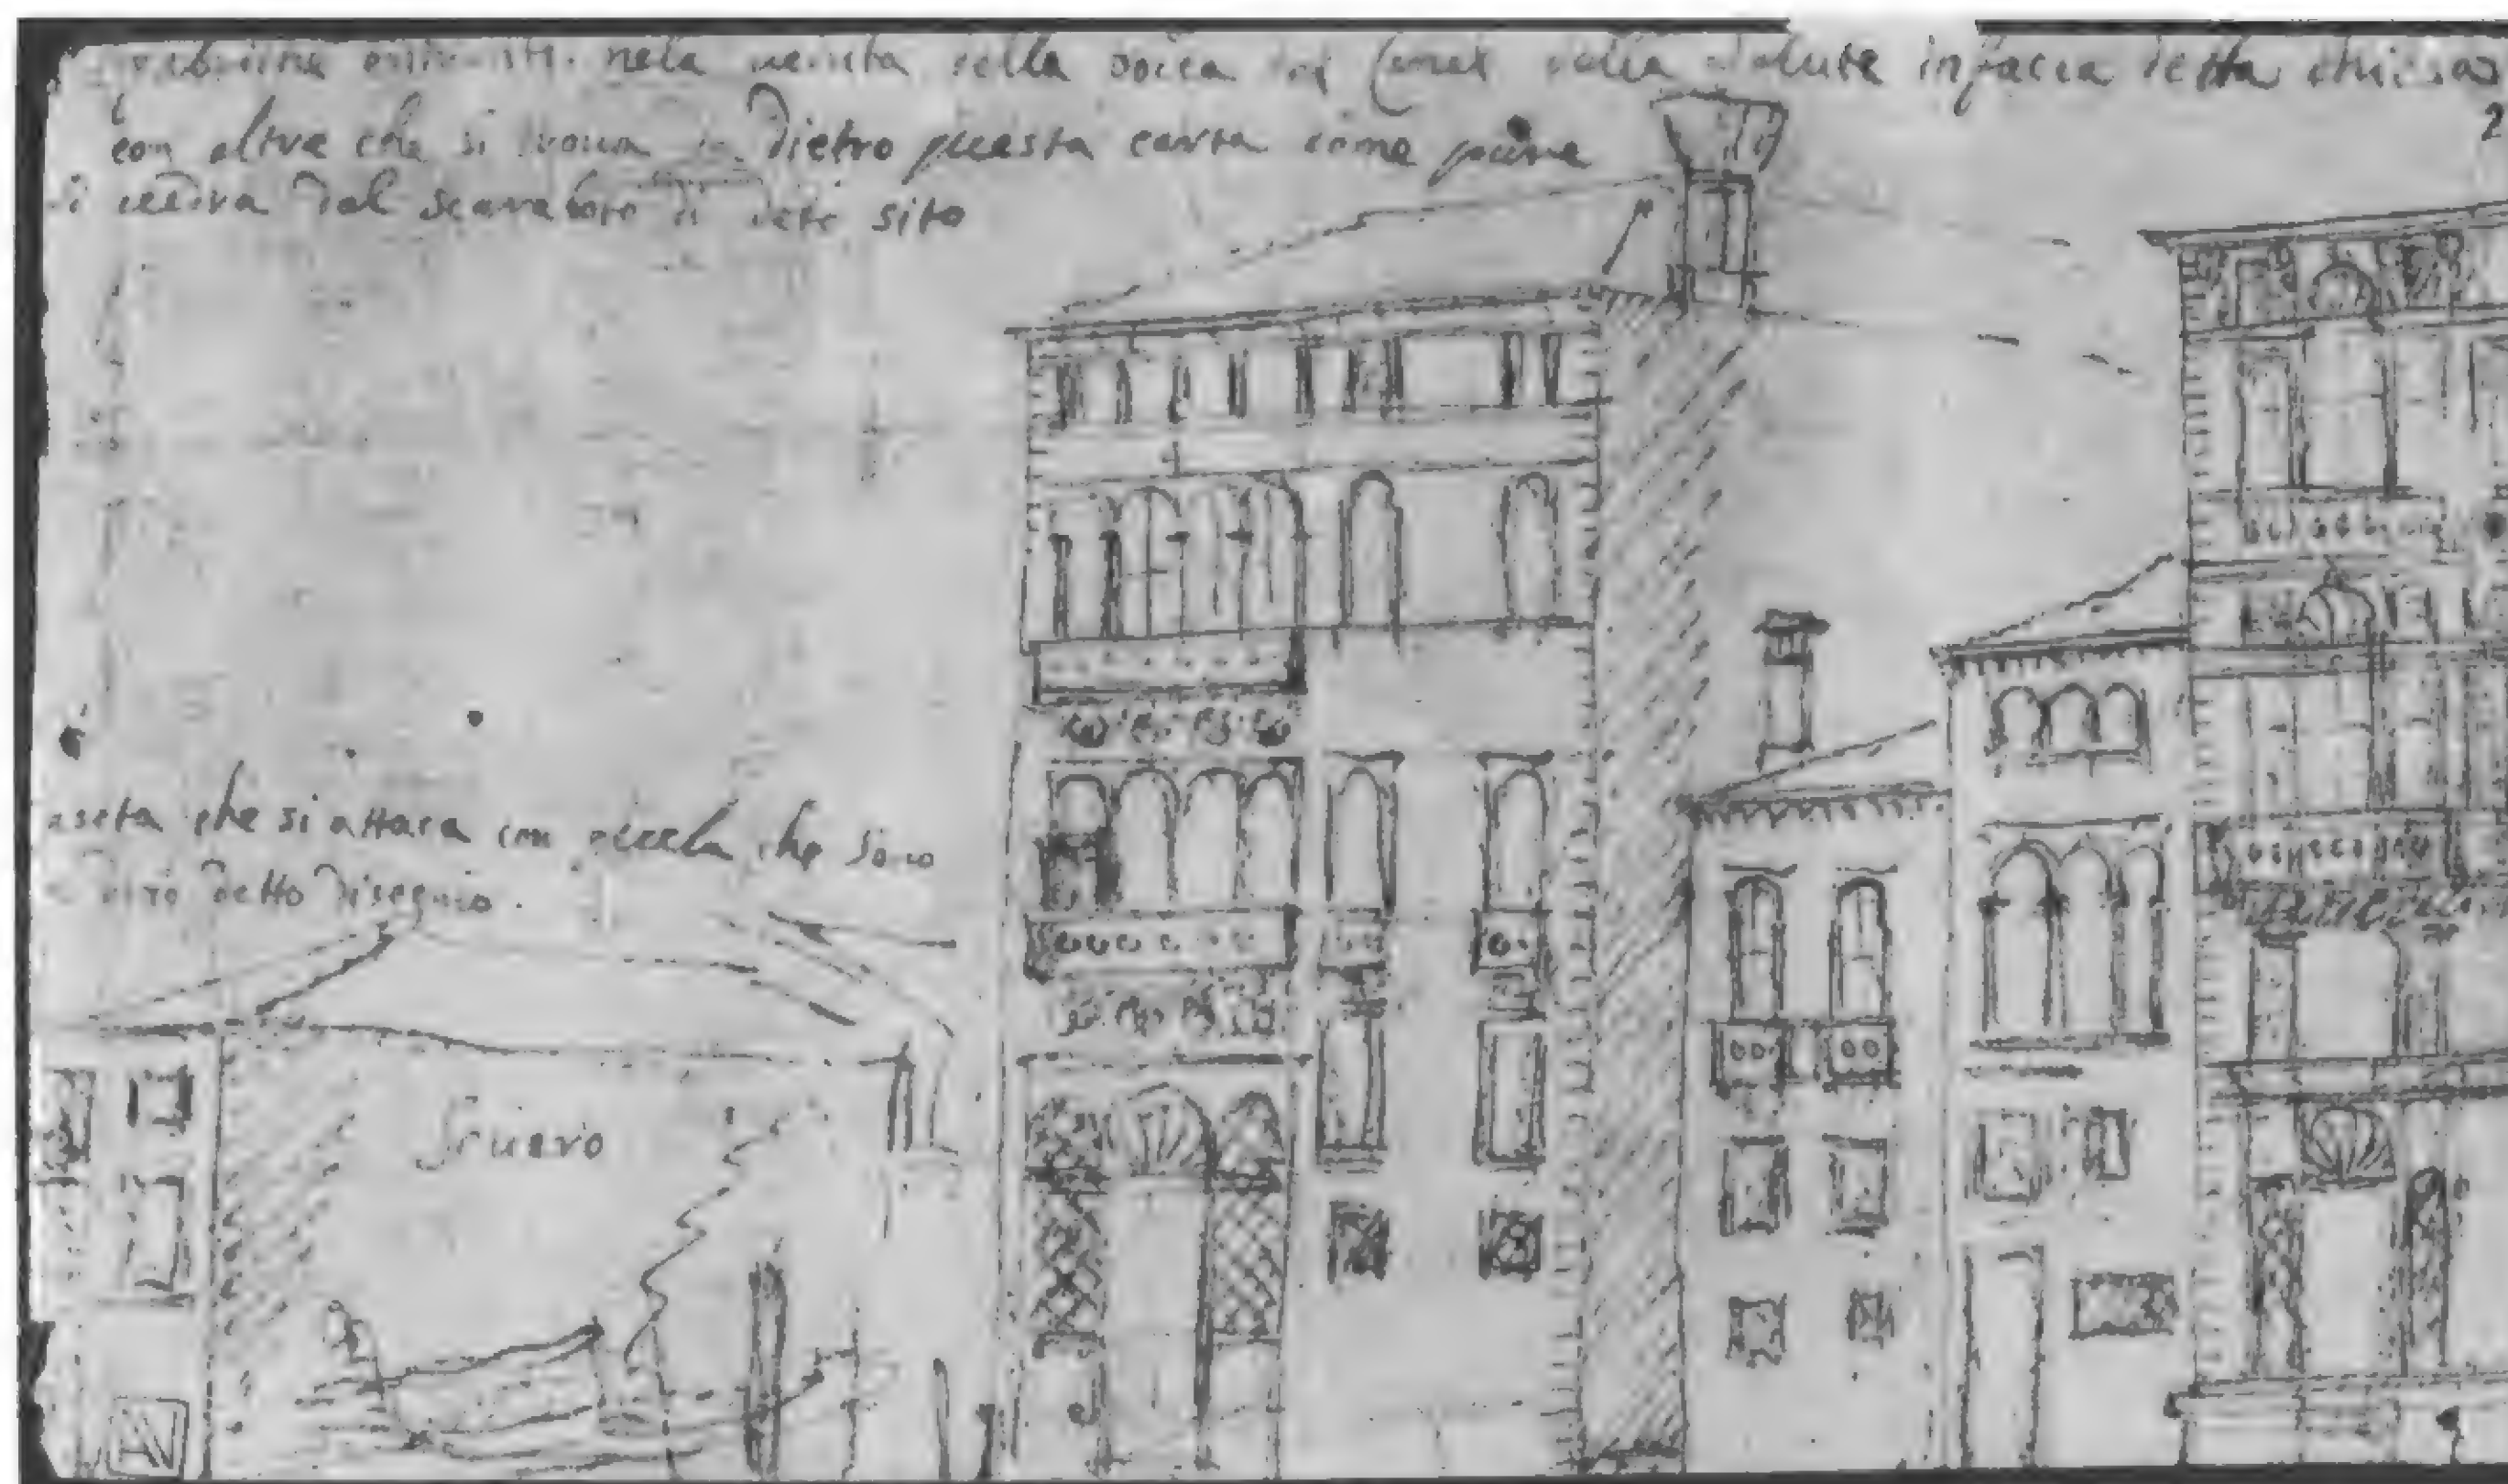 nela veduta della bocca del Canal della Salute in facia detta chiesa
2
con altre che si trova in Dietro questa carta come pure
si vedra dal scaraboto di deto sito
che si attaca con picola che sono
detto disegnio.
Scuero